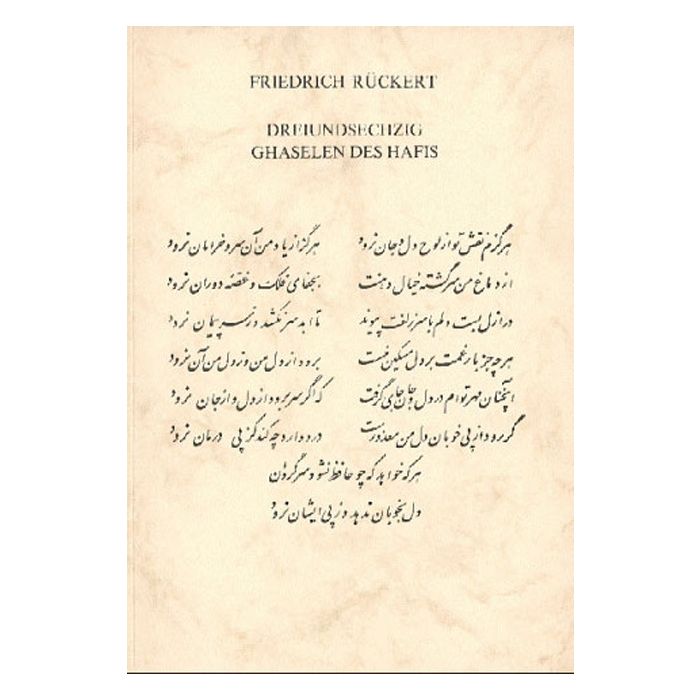 FRIEDRICH RÜCKERT
DREIUNDSECHZIG
GHASELEN DES HAFIS
هرگزم نقش تو از لوح دل و جان نرود هرگز از یاد من آن سرو خرامان نرود
از دماغ من سرگشته خیال دهنت بجفای فلک و غصه دوران نرود
در ازل بست دلم با سر زلفت پیوند تا ابد سر نکشد وز سر پیمان نرود
هر چه جز بار غمت بر دل مسکین نیست برود از دل من وز دل من آن نرود
آنچنان مهر توام در دل و جان جای گرفت که اگر سر برود از دل و از جان نرود
گر رود از پی خوبان دل من معذورست درد دارد چه کند کز پی درمان نرود
هر که خواهد که چو حافظ نشود سرگردان
دل بخوبان ندهد وز پی ایشان نرود